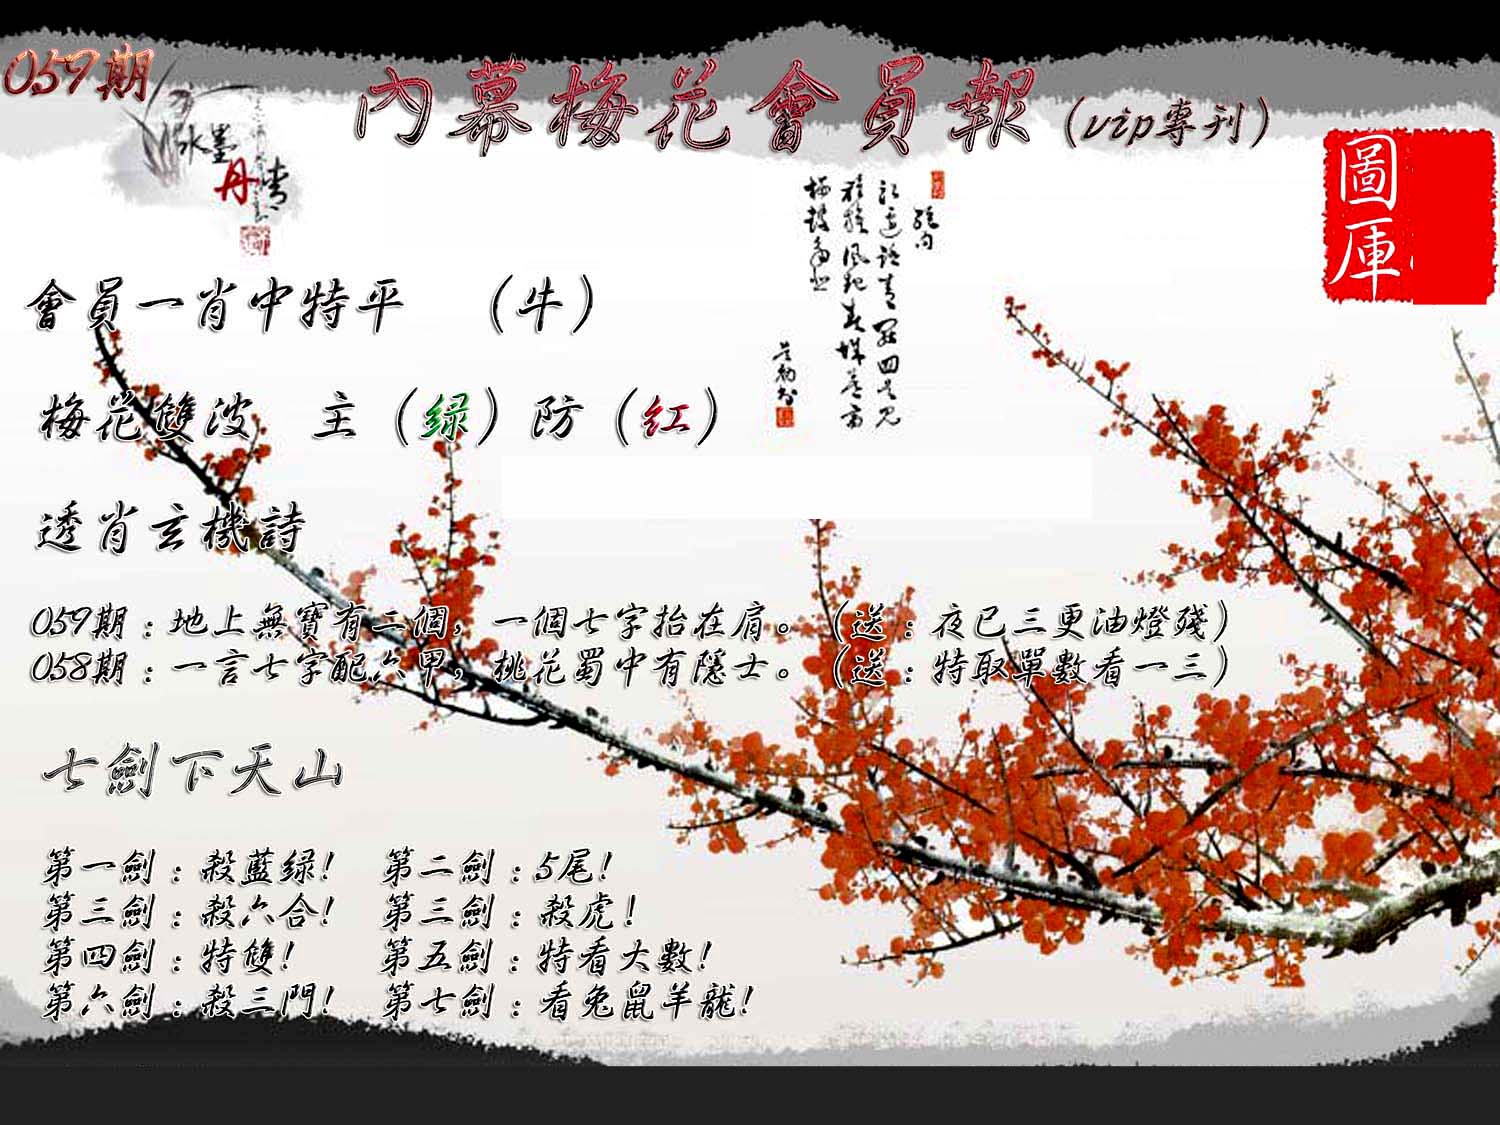 059期
內幕梅花會員報(vip專刊)
水墨
丹青
圖庫
會員一肖中特平 (牛)
梅花雙波 主(绿)防(红)
透肖玄機詩
059期:地上無寶有二個,一個七字抬在肩。(送:夜已三更油燈殘)
058期:一言七字配六甲,桃花蜀中有隱士。(送:特取單數看一三)
七劍下天山
第一劍:殺藍绿! 第二劍:5尾!
第三劍:殺六合! 第三劍:殺虎!
第四劍:特雙! 第五劍:特看大數!
第六劍:殺三門! 第七劍:看兔鼠羊龍!